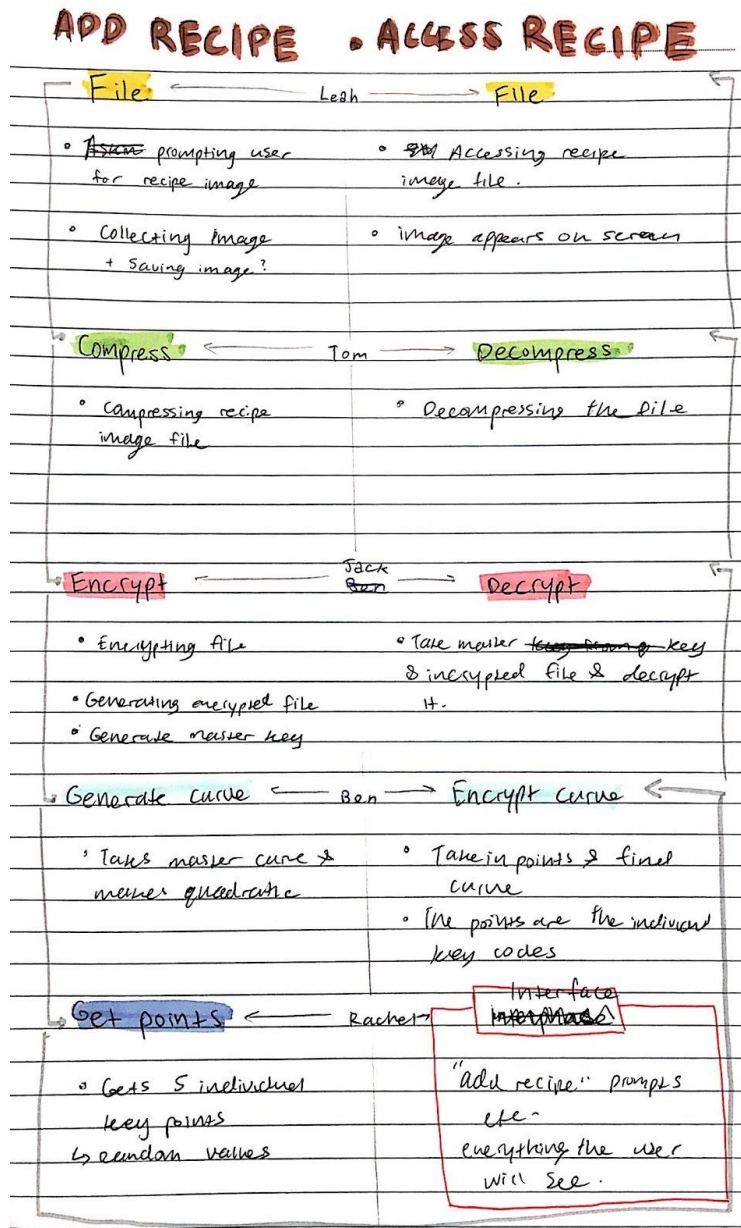 ADD RECIPE . ACCESS RECIPE
File Leah File
• prompting user
for recipe image
• Accessing recipe
image file.
• Collecting image
+ Saving image?
• image appears on screen
Compress Tom Decompress
• Compressing recipe
image file
• Decompressing the file
Jack
Encrypt Ben Decrypt
• Encrypting file
• Generating encrypted file
• Generate master key
• Take master key
& incrypted file & decrypt
it.
Generate curve Ben Encrypt curve
• Takes master curve &
makes quadratic
• Take in points & find
curve
• The points are the individual
key codes
Get points Rachel
• Gets 5 individual
key points
↳ random values
Interface
Interphase
"add recipe" prompts
etc-
everything the user
will see.